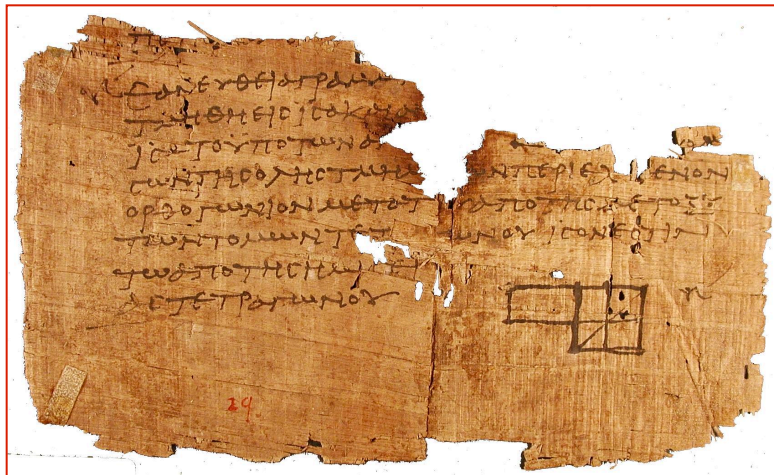 ΕΑΝ ΕΥΘΕΙΑ ΓΡΑΜ
ΤΜΗΘΗ ΕΙϹ ΙϹΑ Κ
ΙϹΑ ΤΟ ΥΠΟ ΤΩΝ Α
ϹΩΝ ΤΗϹ ΟΛΗϹ ΤΜΗ ΩΝ ΠΕΡΙΕΧ ΜΕΝΟΝ
ΟΡΘΟΓΩΝΙΟΝ ΜΕΤΑ ΤΟΥ ΑΠΟ ΤΗϹ ΜΕΤΟΞΥ
ΤΩΝ ΤΟΜΩΝ ΤΕΤ ΩΝΟΥ ΙϹΟΝ ΕϹΤΙΝ
ΤΩ ΑΠΟ ΤΗϹ ΗΜΙϹΕΙ
ΑϹ ΤΕΤΡΑΓΩΝΟΥ
29